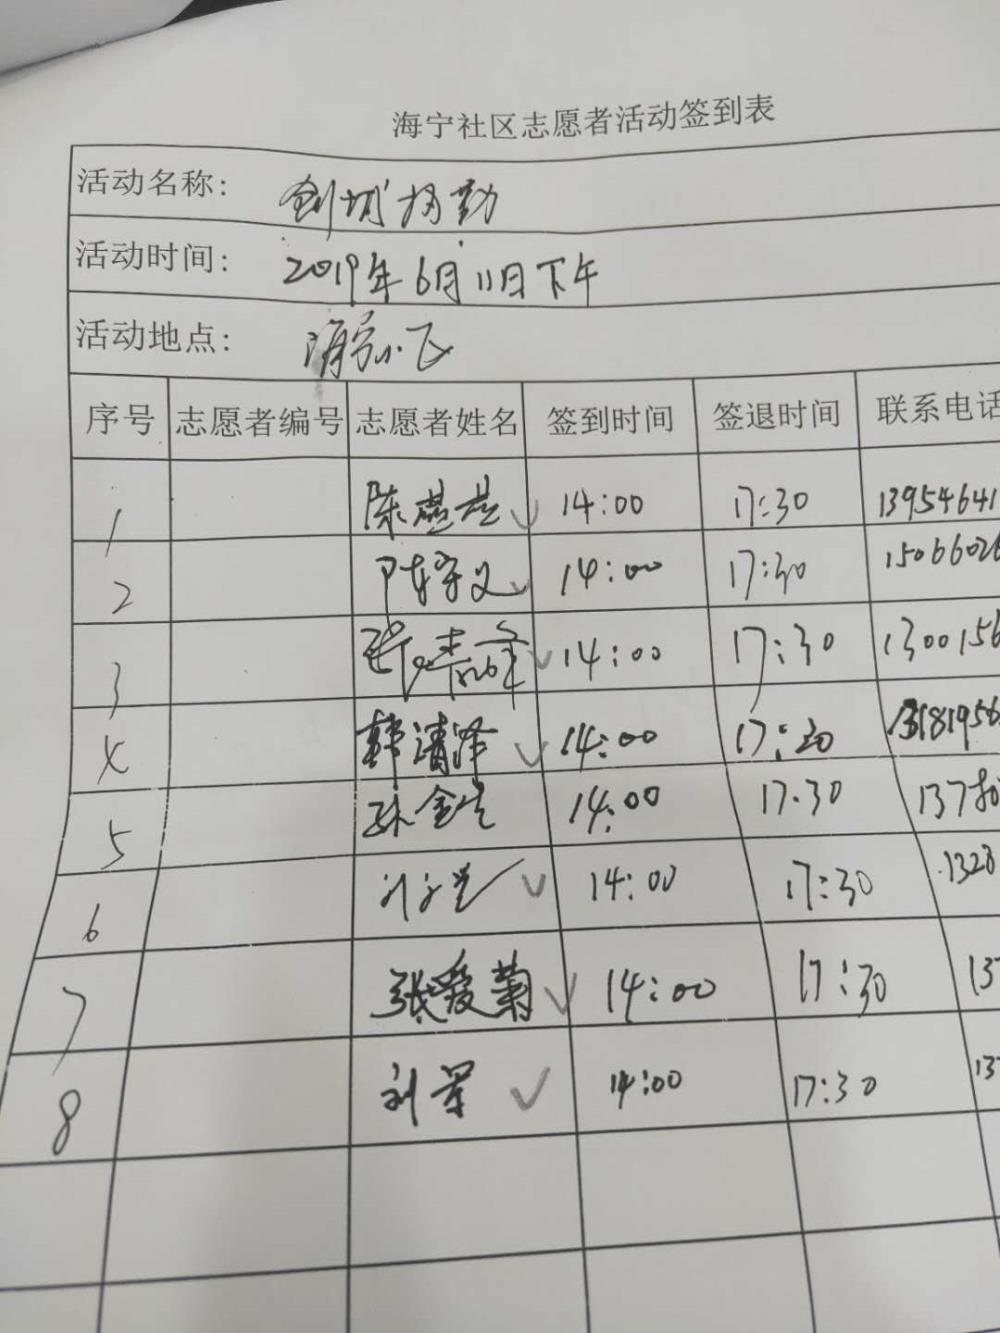 海宁社区志愿者活动签到表
活动名称: 创城执勤
活动时间: 2019年6月11日下午
活动地点: 海宁小区
序号 志愿者编号 志愿者姓名 签到时间 签退时间 联系电话
1 陈燕燕 14:00 17:30 13954641
2 陈守义 14:00 17:30 1506602
3 14:00 17:30 1300156
4 韩清泽 14:00 17:30 13181956
5 孙金 14:00 17:30 137
6 14:00 17:30 1328
7 张爱菊 14:00 17:30 13
8 刘军 14:00 17:30 13